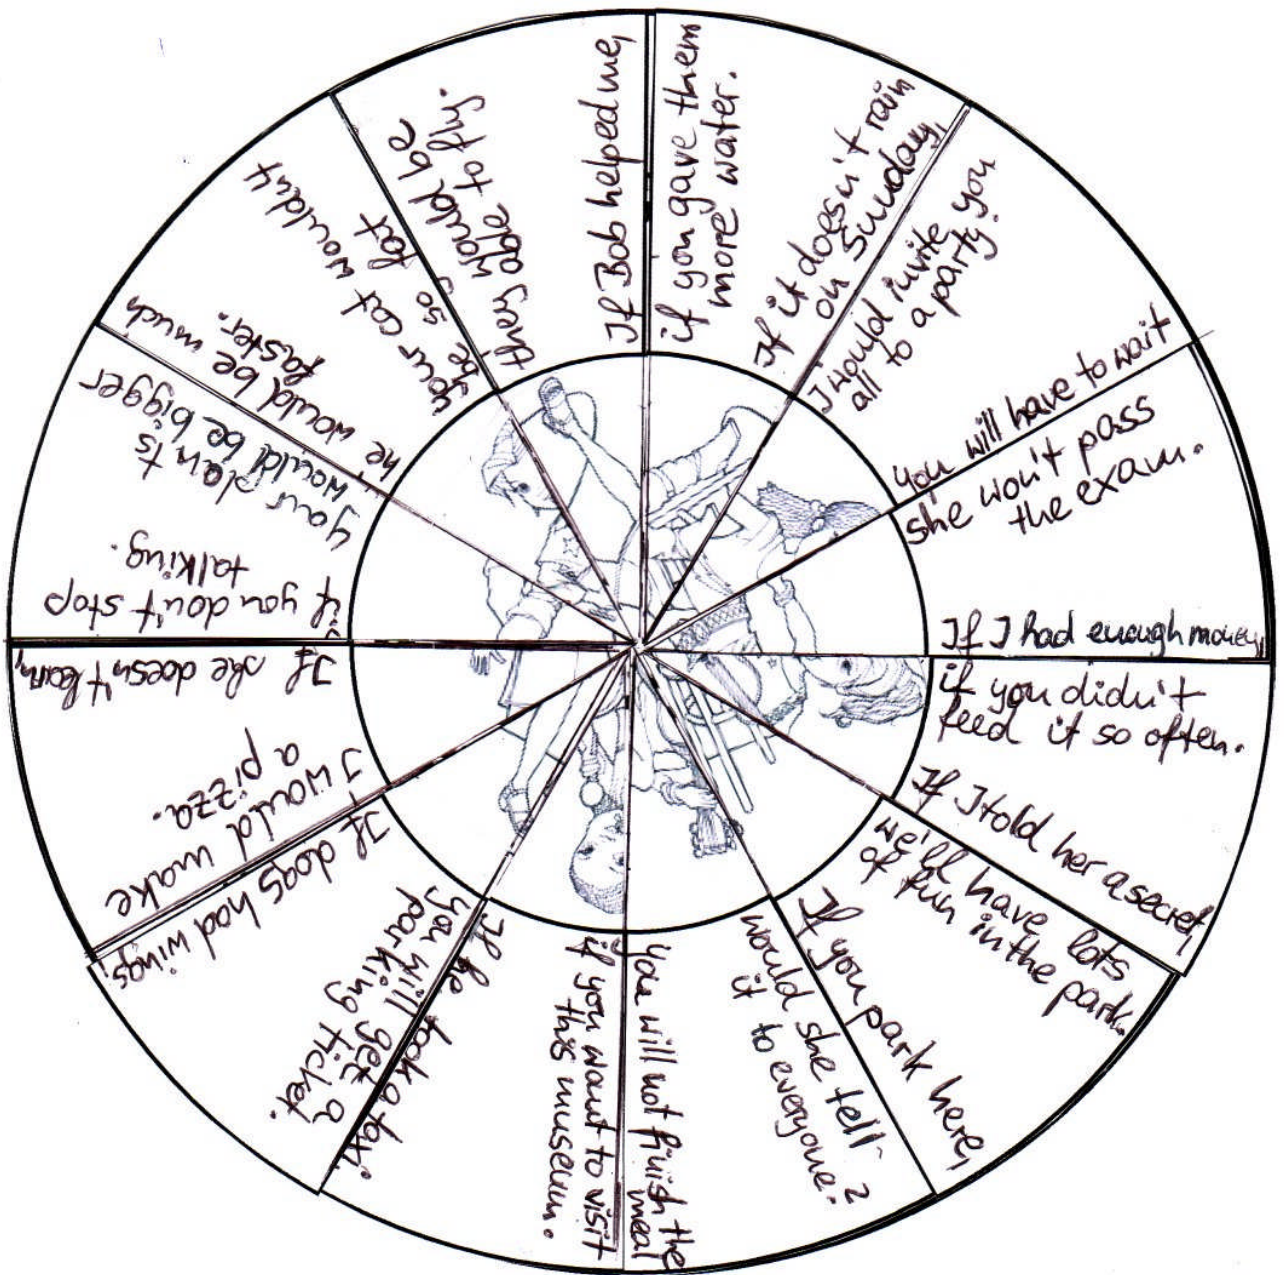 if you gave them
more water.
If it doesn't rain
on Sunday,
I would invite you
all to a party.
you will have to wait
she won't pass
the exam.
If I had enough money,
if you didn't
feed it so often.
If I told her a secret,
we'll have lots
of fun in the park.
If you park here,
would she tell
it to everyone?
You will not finish the
meal
if you want to visit
this museum.
If he took a taxi,
you will get a
parking ticket.
If dogs had wings,
I would make
a pizza.
If she doesn't learn,
if you don't stop
talking.
your plants
would be bigger
he would be much
faster.
your cat wouldn't
be so fat
they would be
able to fly.
If Bob helped me,